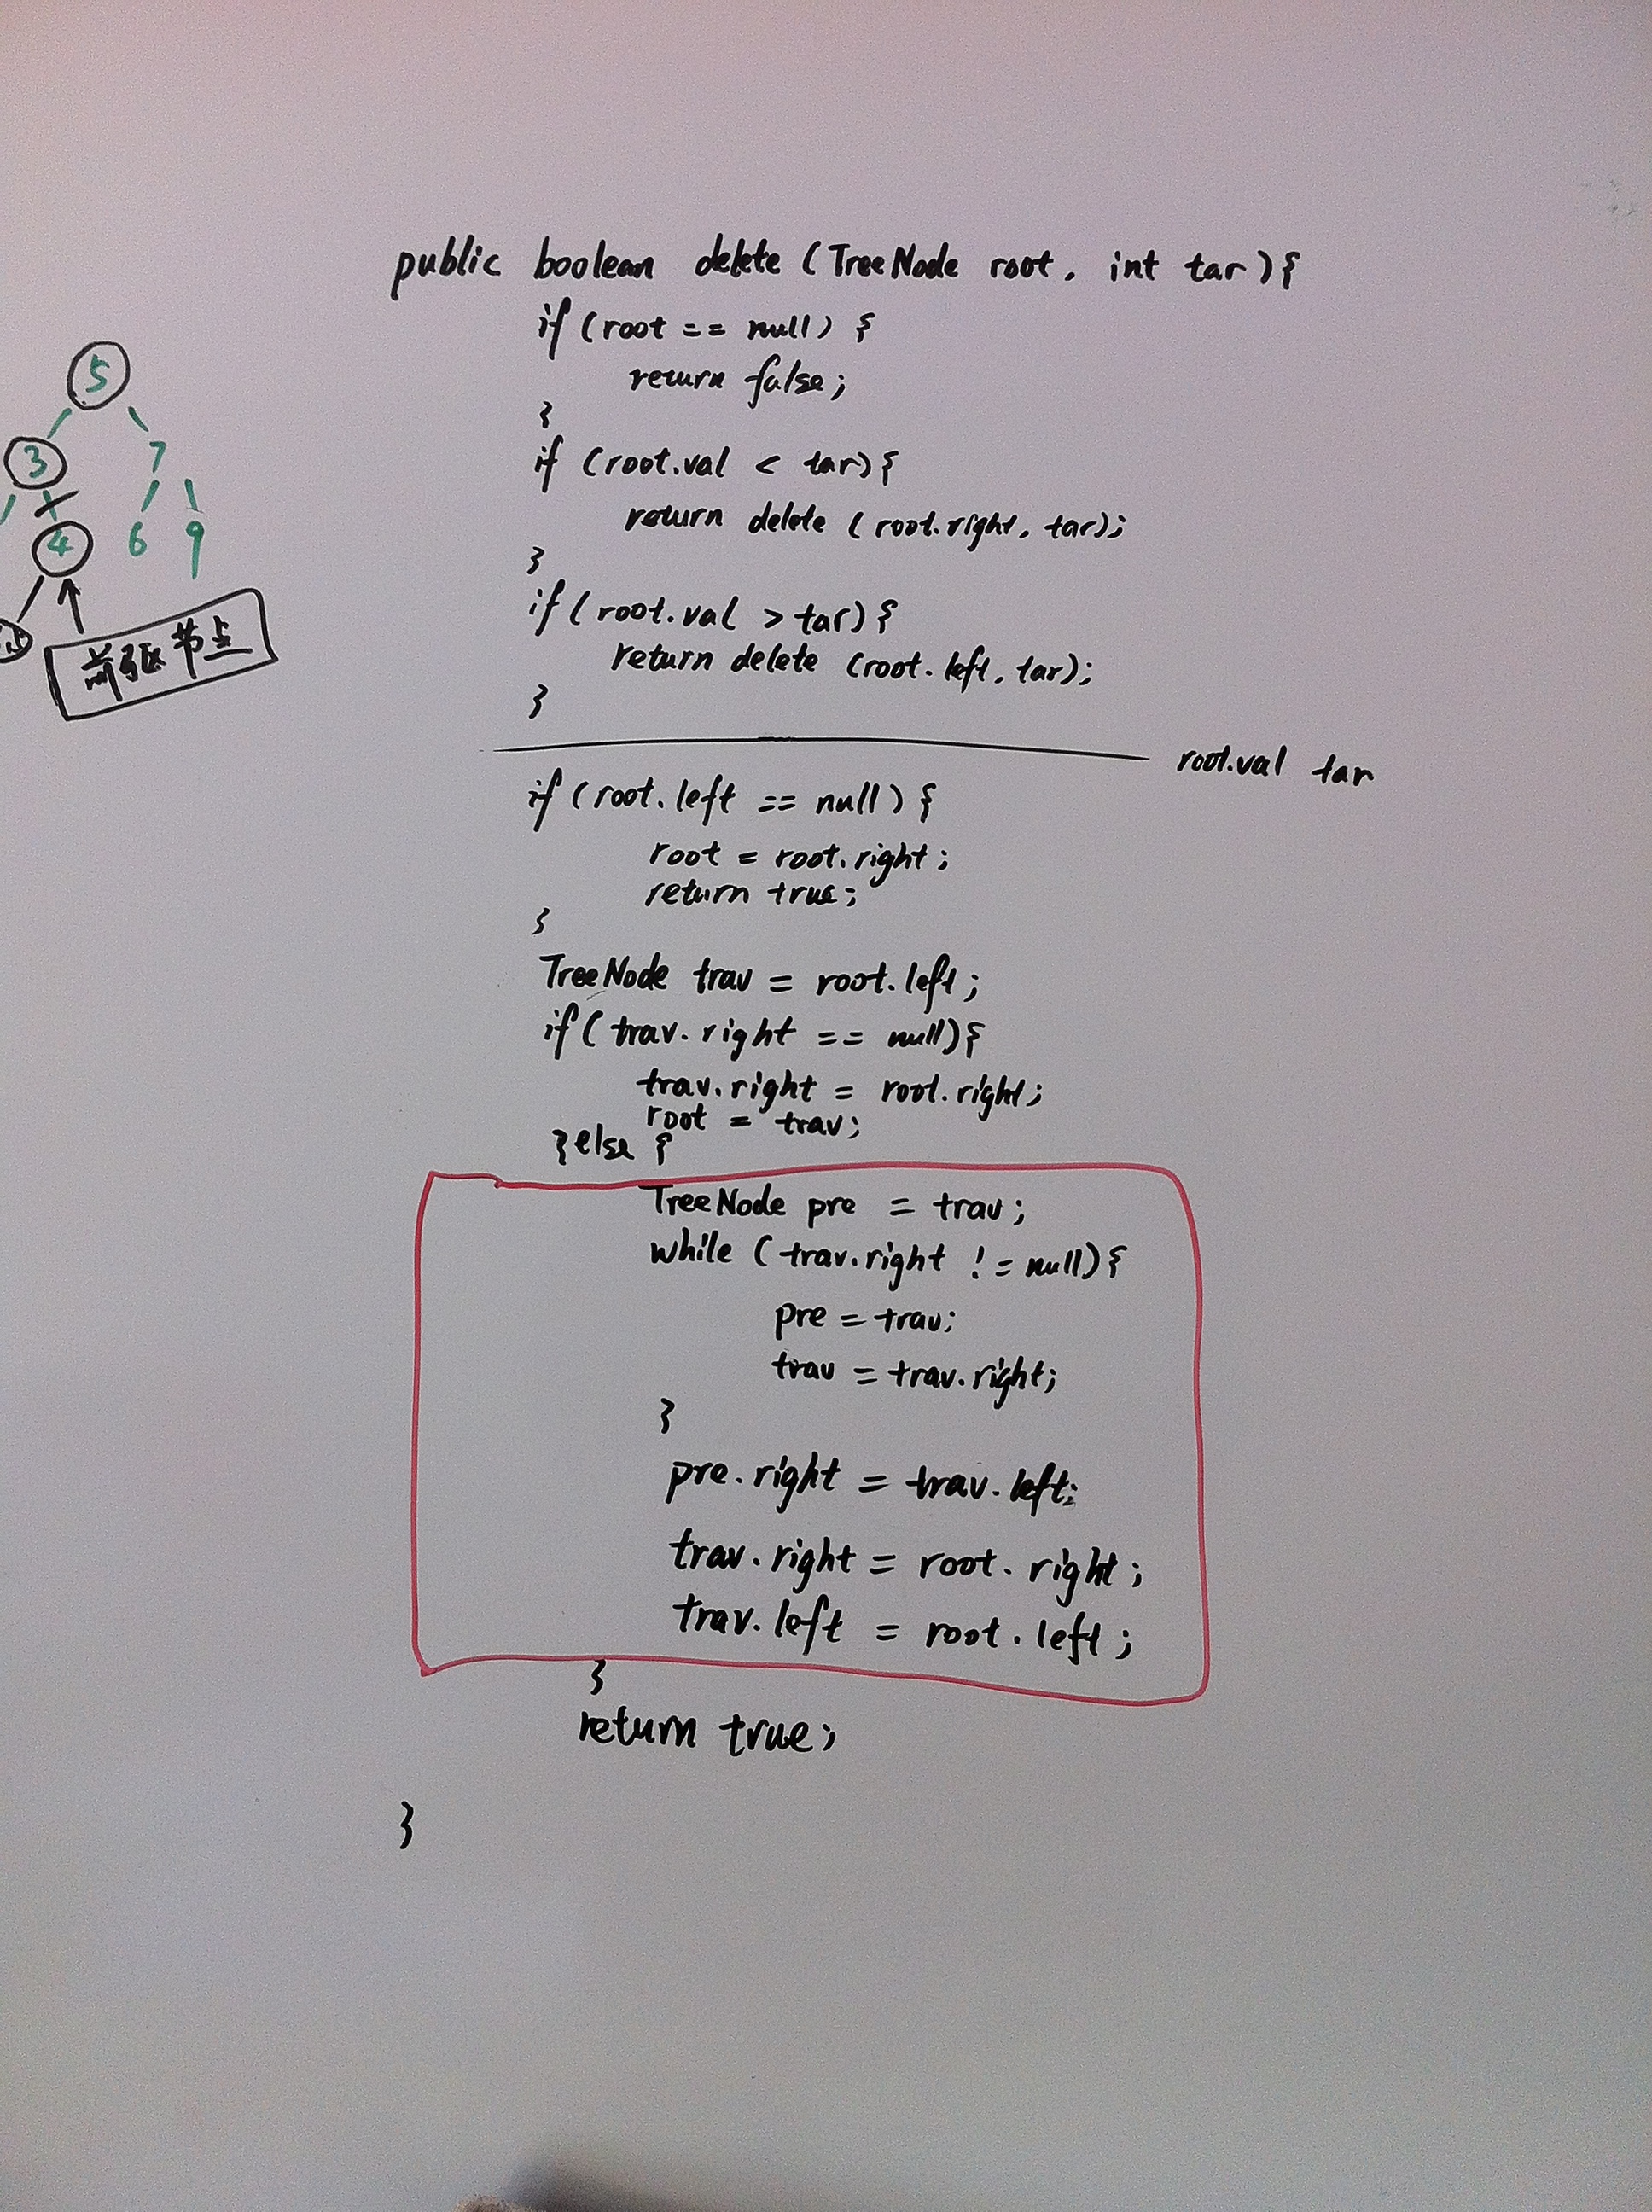 public boolean delete (TreeNode root, int tar){
if (root == null) {
return false;
}
if (root.val < tar){
return delete (root.right, tar);
}
if (root.val > tar){
return delete (root.left, tar);
}
root.val tar
if (root.left == null) {
root = root.right;
return true;
}
TreeNode trav = root.left;
if (trav.right == null){
trav.right = root.right;
root = trav;
}else {
TreeNode pre = trav;
while (trav.right != null){
pre = trav;
trav = trav.right;
}
pre.right = trav.left;
trav.right = root.right;
trav.left = root.left;
}
return true;
}
5
3 7
4 6 9
前驱节点